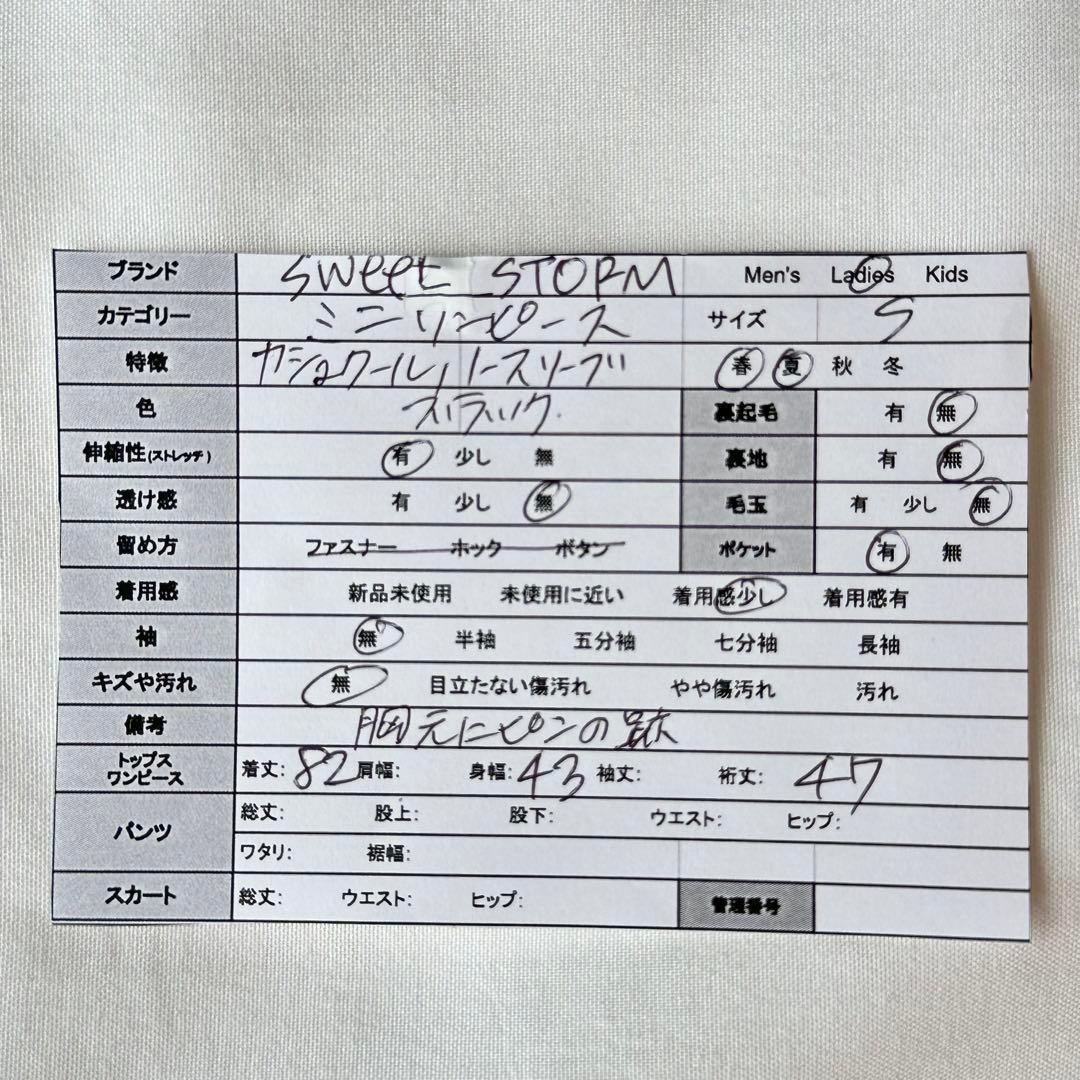 ブランド sweet STORM Men's Ladies Kids
カテゴリー ミニワンピース サイズ S
特徴 カシュクール,ノースリーブ 春 夏 秋 冬
色 ブラック 裏起毛 有 無
伸縮性(ストレッチ) 有 少し 無 裏地 有 無
透け感 有 少し 無 毛玉 有 少し 無
留め方 ファスナー ホック ボタン ポケット 有 無
着用感 新品未使用 未使用に近い 着用感少し 着用感有
袖 無 半袖 五分袖 七分袖 長袖
キズや汚れ 無 目立たない傷汚れ やや傷汚れ 汚れ
備考 胸元にピンの跡
トップス
ワンピース 着丈: 82 肩幅: 身幅: 43 袖丈: 裄丈: 47
パンツ 総丈: 股上: 股下: ウエスト: ヒップ:
ワタリ: 裾幅:
スカート 総丈: ウエスト: ヒップ: 管理番号